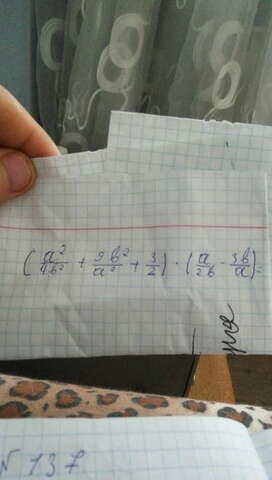 (a²/4b² + 9b²/a² + 3/2) · (a/2b - 3b/a) =
№ 137